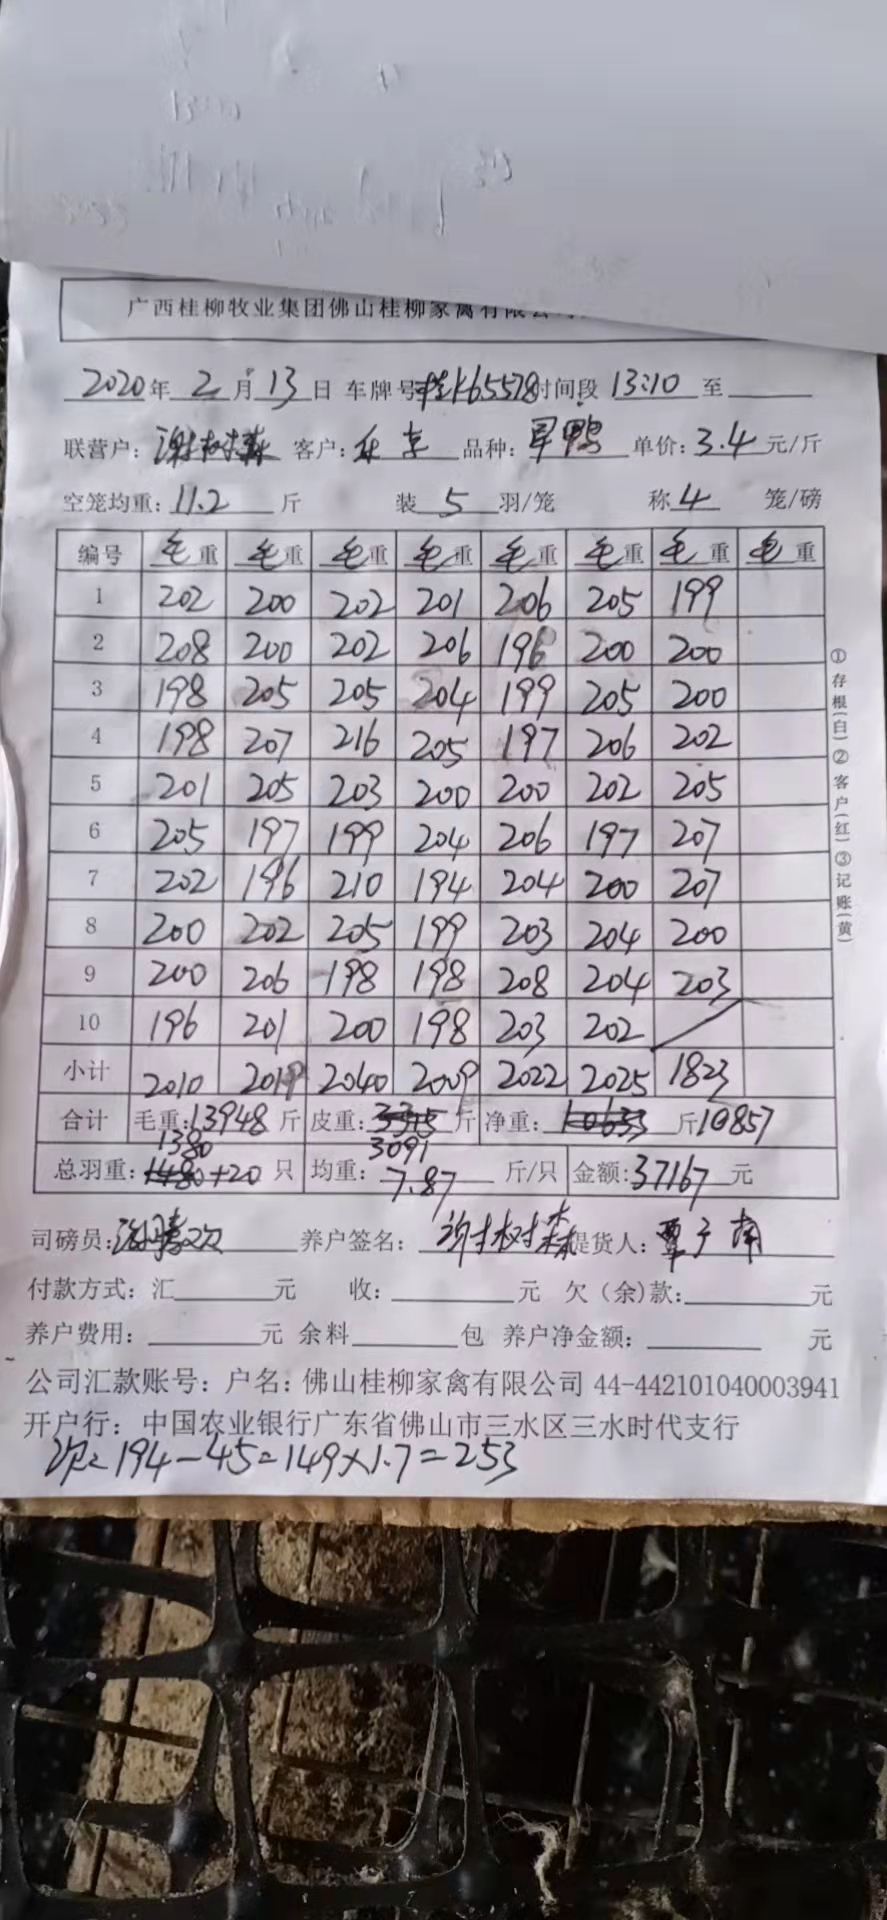 广西桂柳牧业集团佛山桂柳家禽有限公司
2020年 2月13日 车牌号桂K65578时间段 13:10 至
联营户：谢树森 客户： 品种： 鸭 单价：3.4元/斤
空笼均重：11.2斤 装 5 羽/笼 称 4 笼/磅
编号 毛重 毛重 毛重 毛重 毛重 毛重 毛重 毛重
1 202 200 202 201 206 205 199
2 208 200 202 206 196 200 200
3 198 205 205 204 199 205 200
4 198 207 216 205 197 206 202
5 201 205 203 200 200 202 205
6 205 197 199 204 206 197 207
7 202 196 210 194 204 200 207
8 200 202 205 199 203 204 200
9 200 206 198 198 208 204 203
10 196 201 200 198 203 202
小计 2010 2019 2040 2009 2022 2025 1823
合计 毛重：13948斤 皮重：3315斤 净重：10633斤10857
1380 3091
总羽重：1480+20只 均重：7.87斤/只 金额：37167元
司磅员： 养户签名：谢树森 提货人：覃
付款方式：汇 元 收： 元 欠（余）款： 元
养户费用： 元 余料 包 养户净金额： 元
公司汇款账号：户名：佛山桂柳家禽有限公司 44-442101040003941
开户行：中国农业银行广东省佛山市三水区三水时代支行
次=194-45=149×1.7=253
①存根（白）②客户（红）③记账（黄）